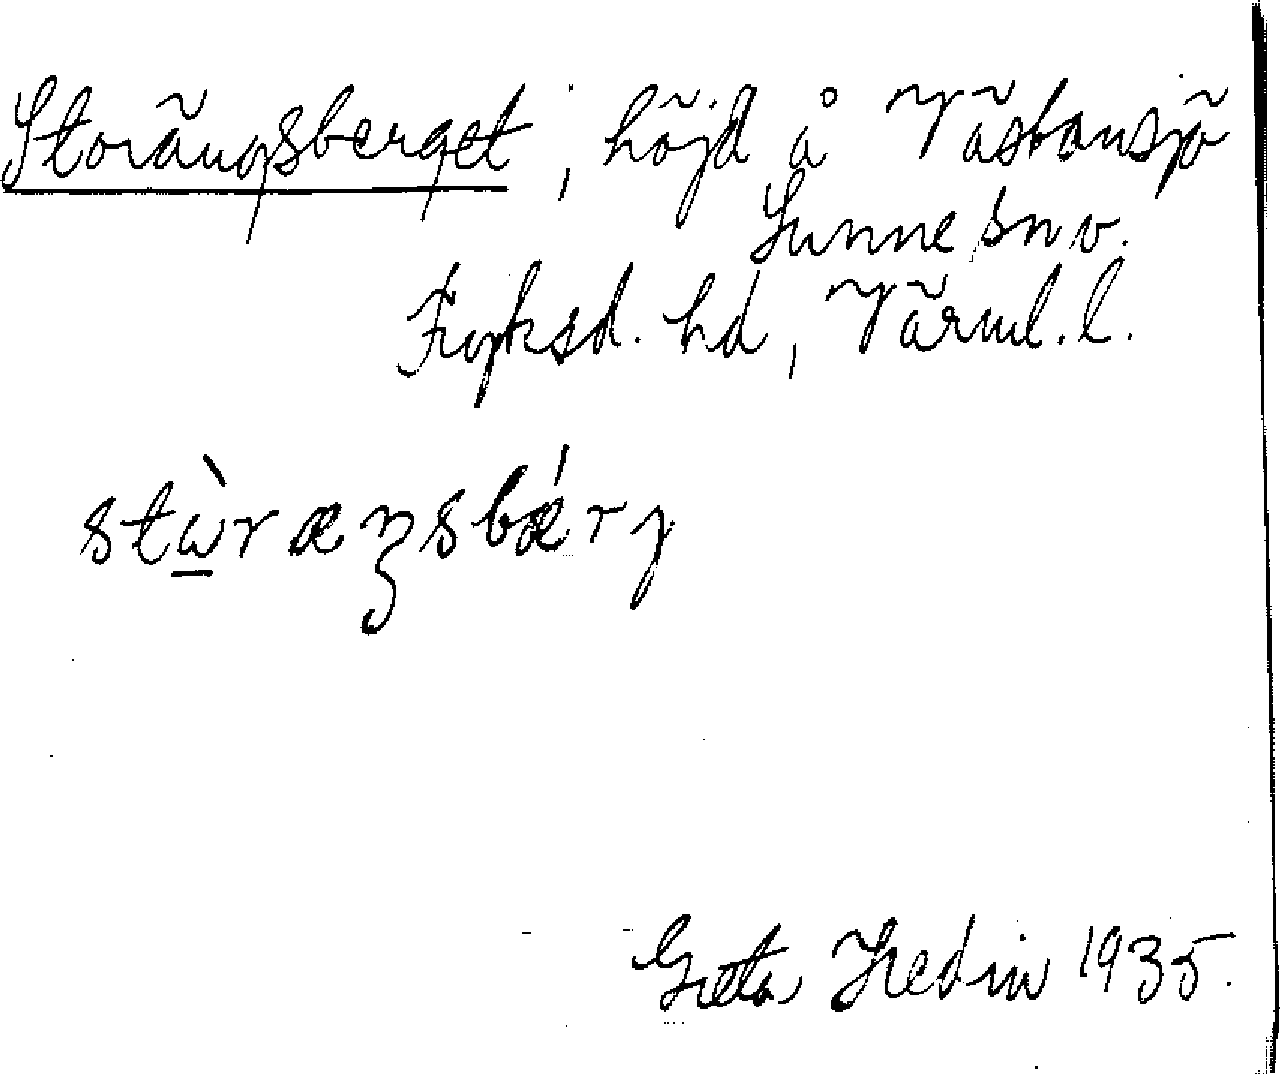 Storängsberget, höjd å Västansjö
Sunne sn v.
Fryksd. hd, Värml. l.
stὼ̲ræŋsbǽrj
Greta Hedin 1935.